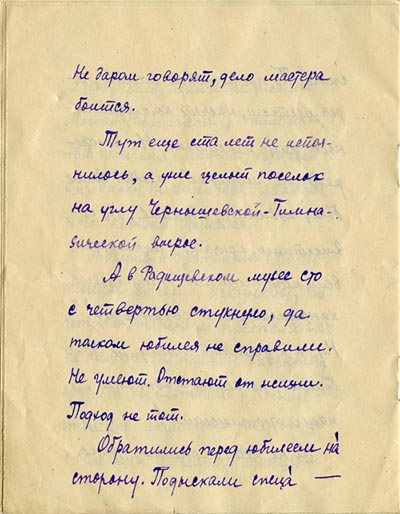 Не даром говорят, дело мастера
боится.
Тут еще ста лет не испол-
нилось, а уже целый поселок
на углу Чернышевской-Гимна-
зической вырос.
А в Радищевском музее сто
с четвертью стукнуло, да
таком юбилея не справили.
Не умеют. Отстают от жизни.
Подход не тот.
Обратились перед юбилеем на́
сторону. Подыскали спеца́ —